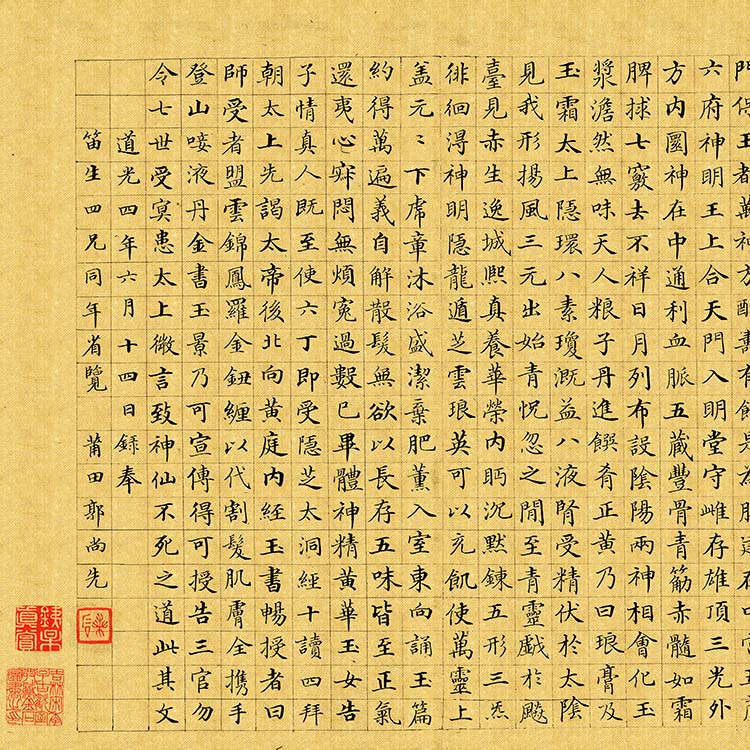 六府神明王上合天門入明堂守雌存雄頂三光外
方內圓神在中通利血脈五藏豐骨青筋赤髓如霜
脾捄七竅去不祥日月列布設陰陽兩神相會化玉
漿澹然無味天人粮子丹進饌肴正黃乃曰琅膏及
玉霜太上隱環八素瓊溉益八液腎受精伏於太陰
見我形揚風三元出始青怳忽之閒至青靈戲於飈
臺見赤生逸域熙真養華榮內眄沉默鍊五形三炁
徘徊得神明隱龍遁芝雲琅英可以充飢使萬靈上
盖元〻下虎章沐浴盛潔棄肥薰入室東向誦玉篇
約得萬遍義自解散髮無欲以長存五味皆至正氣
還夷心寂悶無煩冤過數已畢體神精黃華玉女告
子情真人既至使六丁即受隱芝太洞經十讀四拜
朝太上先謁太帝後北向黃庭內經玉書暢授者曰
師受者盟雲錦鳳羅金鈕纏以代割髮肌膚全攜手
登山唼液丹金書玉景乃可宣傳得可授告三官勿
令七世受冥患太上微言致神仙不死之道此其文
道光四年六月十四日錄奉
笛生四兄同年省覽 莆田郭尚先